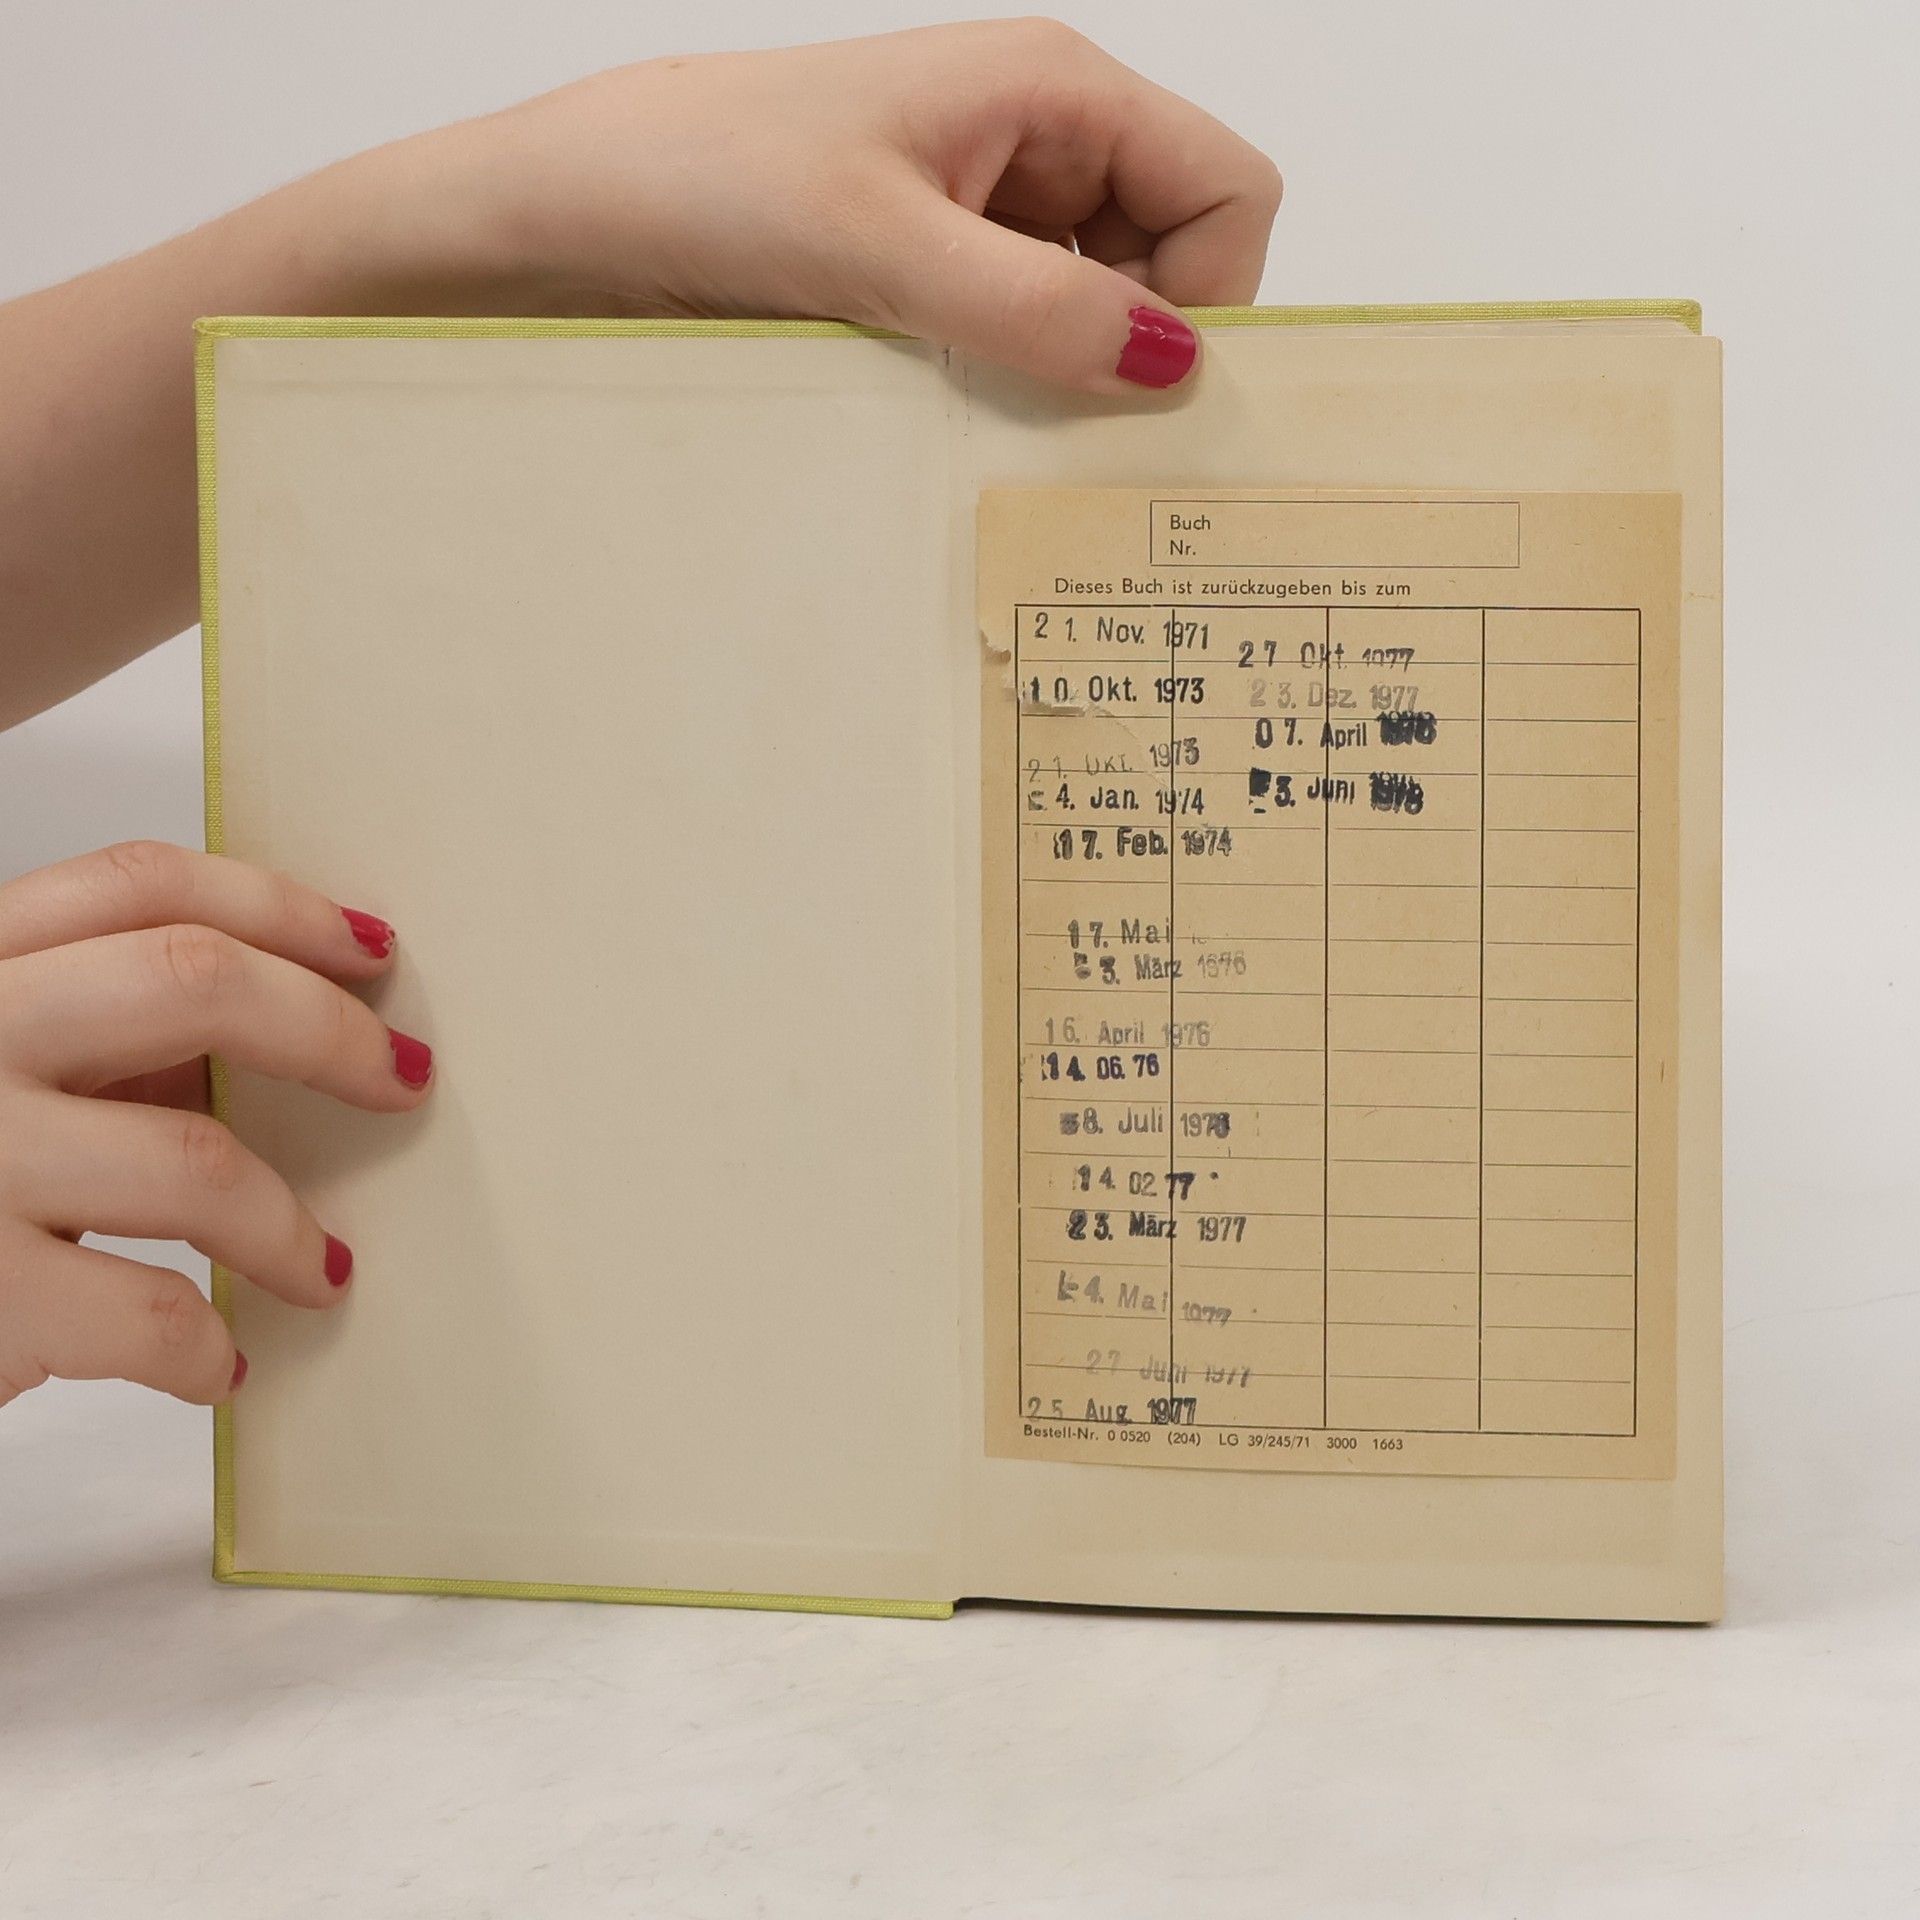 Buch
Nr.
Dieses Buch ist zurückzugeben bis zum
21. Nov. 1971
10. Okt. 1973
21. Okt. 1973
4. Jan. 1974
17. Feb. 1974
17. Mai
3. März 1976
16. April 1976
14. 06. 76
8. Juli 1976
14. 02 77
23. März 1977
4. Mai 1977
27 Juni 1977
25 Aug. 1977
27 Okt. 1977
23. Dez. 1977
07. April 1978
3. Juni 1978
Bestell-Nr. 0 0520 (204) LG 39/245/71 3000 1663